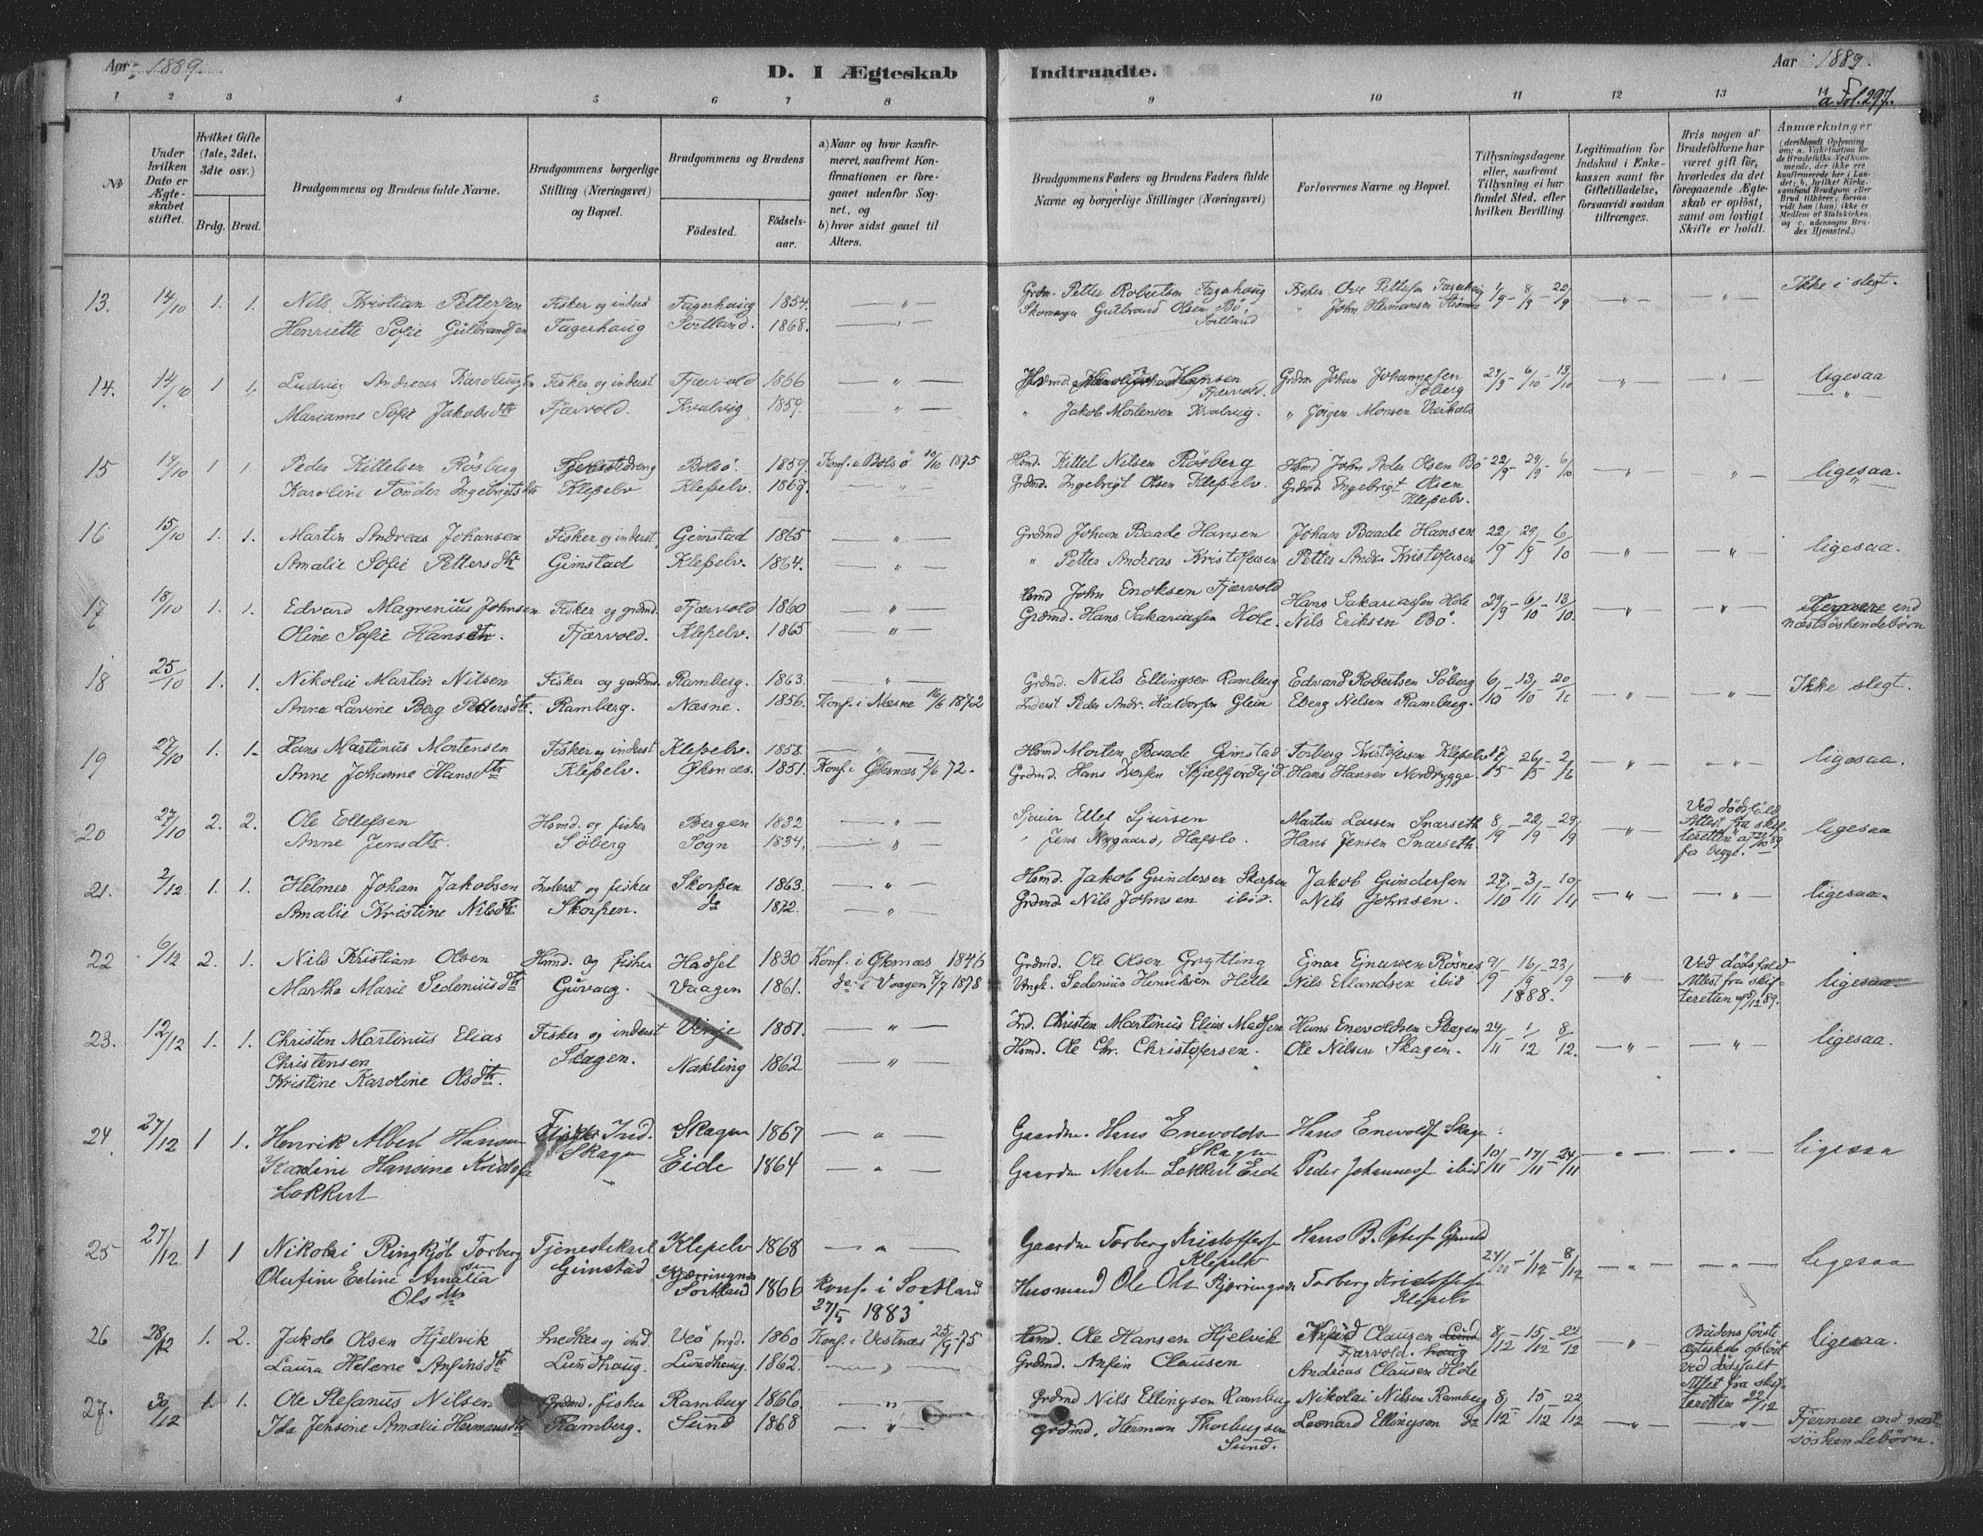 Aar 1889. D. I Ægteskab Indtraadte. Aar 1889.
a Fol. 297.
1 2 3 4 5 6 7 8 9 10 11 12 13 14
No
Under hvilken Dato er Ægteskabet stiftet.
Hvilket Gifte (1ste, 2det, 3die osv.)
Brdg. Brud.
Brudgommens og Brudens fulde Navne.
Brudgommens borgerlige Stilling (Næringsvei) og Bopæl.
Brudgommens og Brudens
Fødested. Fødsels-aar.
a) Naar og hvor konfirmeret, saafremt Konfirmationen er foregaaet udenfor Sognet, og
b) hvor sidst gaaet til Alters.
Brudgommens Faders og Brudens Faders fulde Navne og borgerlige Stillinger (Næringsvei)
Forlovernes Navne og Bopæl.
Tillysningsdagene eller, saafremt Tillysning ei har fundet Sted, efter hvilken Bevilling.
Legitimation for Indskud i Enkekassen samt for Giftetilladelse, forsaavidt saadan tiltrænges.
Hvis nogen af Brudefolkene har været gift før, hvorledes da det foregaaende Ægteskab er opløst, samt om lovligt Skifte er holdt.
Anmærkninger
13. 14/10 1. 1. Nils Kristian Pettersen Fisker og inderst Fagerhaug 1854. — " — Grdm. Petter Robertsen Fagerhaug Fisker Ove Pettersen Fagerhaug 1/9 – 8/9 – 22/9 — " — — " — Ikke i slegt.
Henriette Sofie Gulbrandsen Fagerhaug Sortland. 1868. — " — Skomager Gulbrand Olsen Bö, Sortland " John Hermansen
14. 14/10 1 1. Ludvig Andreas Karoliussen Fisker og inderst Fjærvold 1866 — " — Hansen Fjærvold. Grdm. Johan Johannesen Söberg 29/9 – 6/10 – 13/10 — " — — " — ligesaa
Marianne Sofie Jakobsdtr Fjærvold. Kvalvig 1859. — " — " Jakob Mortensen Kvalvig. " Jörgen Monsen
15 14/10 1 1. Peder Kittelsen Rösberg Bolsö. 1859. Konf. i Bolsö 10/10 1875 Hsmd. Kittel Nilsen Rösberg Hsmd John Peder Olsen Bö 22/9 – 29/9 – 6/10 — " — — " — ligesaa.
Karoline Tönder Ingebrigtsdtr Kleppelv Kleppelv. 1867. — " — Grdmd. Ingebrigt Olsen Kleppelv. Grdmd Ingebrigt Olsen Kleppelv.
16 15/10 1. 1. Martin Andreas Johansen Fisker og inderst Gimstad 1865 — " — Grdmd Johan Baade Hansen Johan Baade Hansen 22/9 – 29/9 – 6/10 — " — — " — ligesaa.
Amalie Sofie Pettersdtr Gimstad Kleppelv. 1864. — " — " Petter Andreas Kristofersen Petter Andr. Kristofersen
17 18/10 1. 1. Edvard Magrenius Johnsen Fisker og grdmd. Fjærvold 1860 — " — Hsmd John Enoksen Fjærvold Hans Sakariassen Hole 29/9 – 6/10 – 13/10 — " — — " — Fjernere end
Oline Sofie Hansdtr. Fjærvold. Kleppelv. 1865 — " — Grdmd. Hans Sakariassen Hole. Nils Eriksen Bö. næstsöskendebörn
18 25/10 1. 1. Nikolai Martin Nilsen Fisker og gaardmd. Ramberg. 1863. — " — Grdmd. Nils Ellingsen Ramberg Edvard Robertsen Söberg 6/10 – 13/10 – 20/10 — " — — " — Ikke slegt.
Anna Lavine Berg Pettersdtr. Ramberg. Næsne. 1856. Konf. i Næsne 16/6 1872 Inderst Peder Andr. Haldorsen Glein Eberg Nielsen Ramberg.
19 27/10 1. 1. Hans Martinus Mortensen Fisker og inderst Kleppelv. 1858. — " — Hsmd Morten Baade Gimstad Torberg Kristofersen Kleppelv 17/5 – 26/5 – 2/6 — " — — " — ligesaa.
Anne Johanne Hansdtr Kleppelv. Öksnæs. 1851. Konf. i Öksnæs 2/6 72. Grdmd. Hans Hans Hansen Nordrygge.
20 27/10 2. 2. Ole Ellefsen Hsmd. og fisker Bergen 1832 — " — Martin Larsen Snarseth 8/9 – 22/9 – 29/9 — " — Ved dödsfald Attest fra skifteretten af 21/10 89 for begge. ligesaa
Anne Jensdtr. Söberg Sogn 1834. — " — " Jens Nygaard, Hafslo. Hans Jensen Snarseth.
21. 2/12 1. 1. Helmer Johan Jakobsen Inderst og fisker Skorpen 1863. — " — Hsmd. Jakob Gundersen Skorpen Jakob Gundersen 27/10 – 3/11 – 10/11 — " — — " — ligesaa.
Amalie Kristine Nilsdtr. Skorpen. do 1872. — " — Grdmd Nils Johnsen ibid. Nils Johnsen.
22 6/12 2. 1. Nils Kristian Olsen Hsmd. og fisker Hadsel 1830 Konf. i Öksnæs 1846 Grdmd. Ole Olsen Grytting Ejnar Ejnarsen Rösnes 9/9 – 16/9 – 23/9 1888. — " — Ved dödsfald Attest fra skifteretten af 5/12 89. ligesaa
Martha Marie Sedeniusdtr Guvaag. Vaagen 1861. do i Vaagen 7/7 1878 Sedenius Henriksen Helle Nils Ellandsen ibid
23. 12/12 1. 1. Christen Martinus Elias Fisker og inderst 1851. — " — Ind. Christen Martinus Elias Madsen Hans Enevoldsen Skagen 24/11 1/12 8/12. — " — — " — ligesaa.
Christensen Skagen.
Kristine Karoline Olsdtr. Nakling 1862 — " — Hsmd. Ole Chr. Christofersen. Ole Nilsen Skagen.
24. 27/12 1 1. Henrik Albert Hansen Ind. Skagen Skagen 1867 — " — Gaardm. Hans Enevolds. Skagen Hans Enevolds. Skagen 10/11 – 17/11 – 24/11 — " — — " — ligesaa
Hansine Eide 1864 — " — Gaardm. Lokkert Eide Peder Johannes. ibid
Lokkert
25 27/12 1 1 Nikolai Ringkjöb Torbergsen Tjenestekarl Gimstad Klepelv 1868 — " — Gaardm Torberg Kristoffers. Klepelv Hans B. Peters. Gimstad 24/11 – 1/12 – 8/12 — " — — " — ligesaa
Olufine Edine Amalia Olsdtr Kjærringnes Sortland 1866 Konf. i Sortland 27/5 1883 Husmand Ole Ols. Torberg Kristoffers. Klepelv
26 28/12 1. 2. Jakob Olsen Hjelvik Snedker og ind. Veö prgd. 1860 Konf. i Vestnæs 25/9 75 Hsmd. Ole Hansen Hjelvik Clausen Fjærvold. 8/12 – 15/12 – 22/12 Brudens förste ægteskab oplöst ved dödsfall Attest fra skifteretten 22/12 ligesaa.
Laura Helene Anfinsdtr Lundhaug. Lundhaug. 1862. — " — Grdmd. Anfin Clausen Andreas Clausen Hole
27. 30/12 1. 1. Ole Stefanus Nilsen Grdmd. fisker Ramberg 1866. — " — Grdmd Nils Ellingsen Ramberg Nikolai Nilsen Ramberg 8/12 – 15/12 – 22/12 — " — — " — Fjernere end næst-
Ida Jensine Amalie Hermansdtr Ramberg. Sund 1868 — " — Grdmd. Herman Thorbergsen Sund. Leonard Ellingsen do söskendebörn.